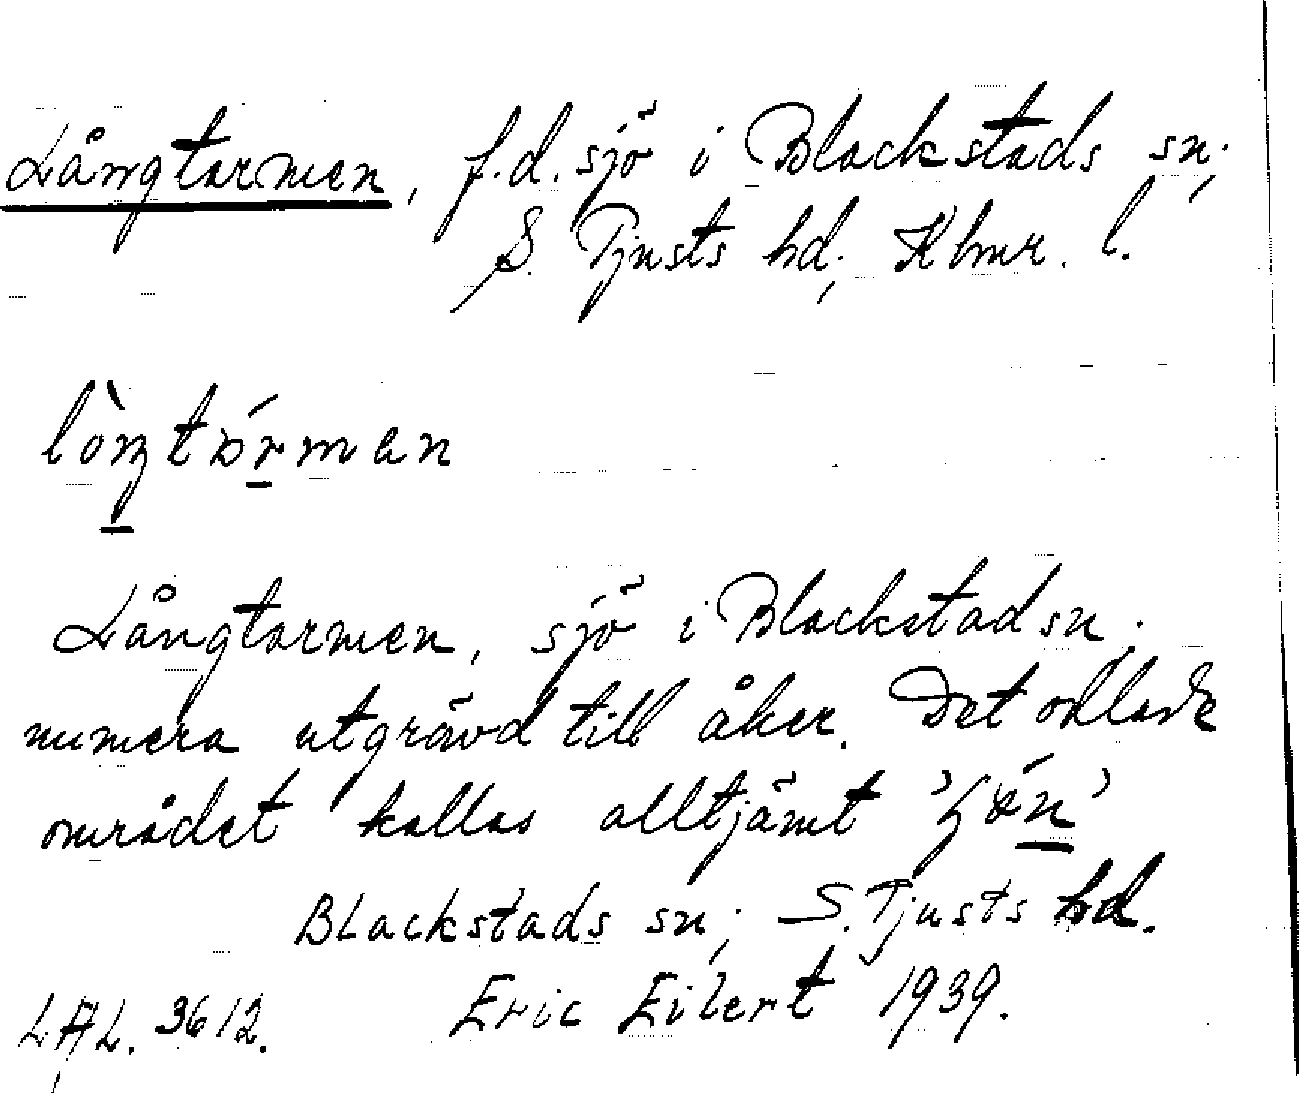 Långtarmen, f.d. sjö i Blackstads sn;
S. Tjusts hd; Klmr. l.
Långtarmen, sjö i Blackstad sn.
numera utgrävd till åker. Det odlade
området kallas alltjämt
Blackstads sn; S. Tjusts hd.
LAL. 3612. Eric Eilert 1939.